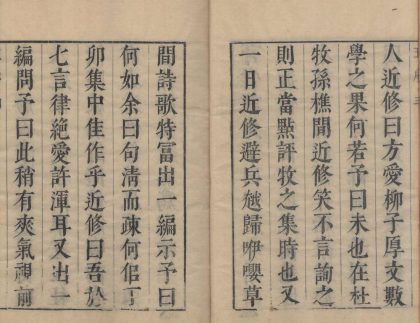 人近修曰方愛柳子厚文數
學之果何若予曰未也在杜
牧孫樵間近修笑不言詢之
則正當點評牧之集時也又
一日近修避兵越歸咿嚶草
間詩歌特富出一編示予曰
何如余曰句清而疎何但丁
卯集中佳作乎近修曰吾於
七言律絕愛許渾耳又出一
編問予曰此稍有爽氣視前